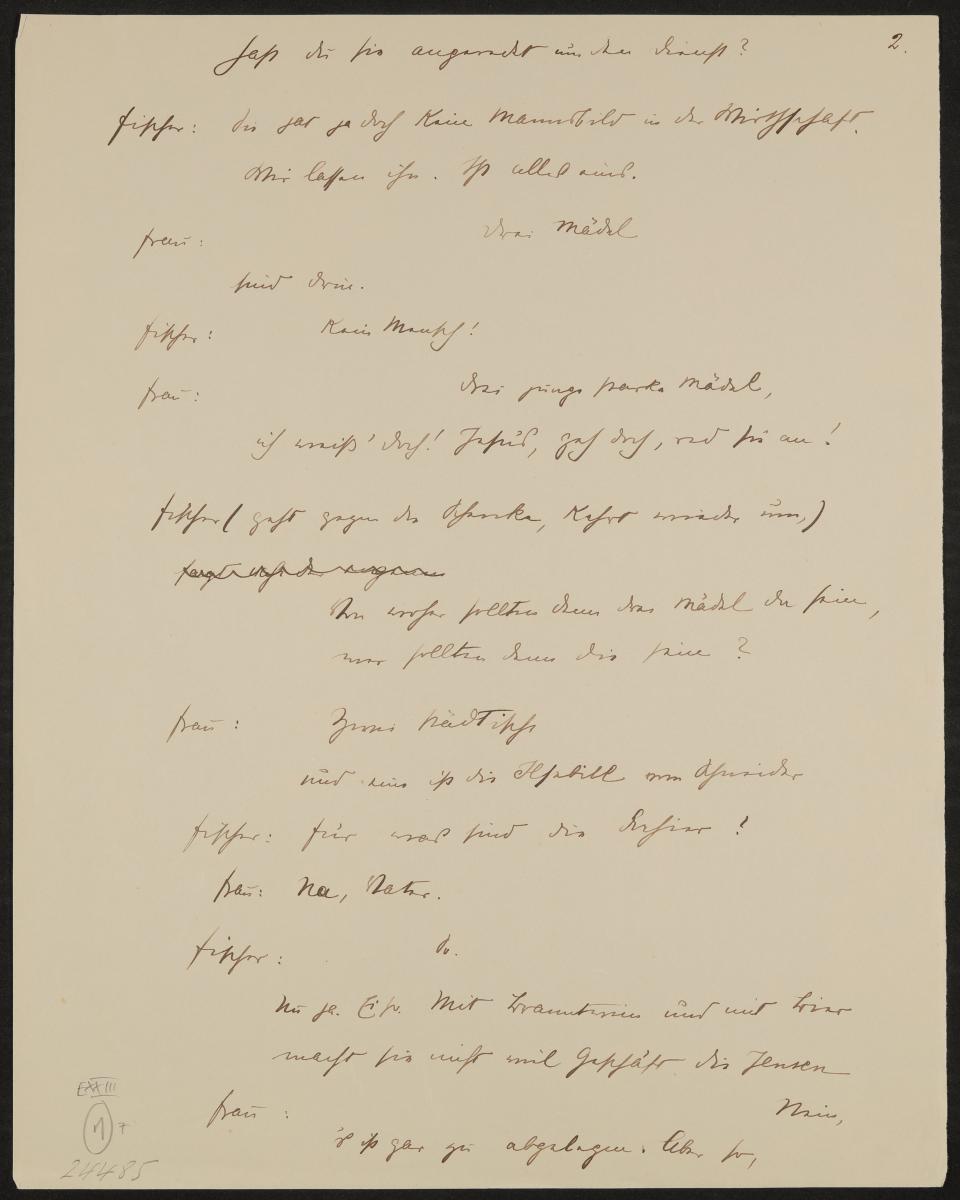 2.
Hast du sie angeredet um den Dienst?
Fischer: Die hat ja doch kein Mannsbild in der Wirthschaft.
Wir lassen ihn. Ist alles eins.
Frau: Drei Mädel
sind drin.
Fischer: Kein Mensch!
Frau: Drei junge starke Mädel,
ich weiß' doch! Jesus, geh doch, red sie an!
Fischer (geht gegen die Schenke, kehrt wieder um,)
Von woher sollten denn drei Mädel da sein,
wer sollten denn die sein?
Frau: Zwei städtische
und eine ist die Ilsebill vom Schneider
Fischer: Für was sind die hier?
Frau: Na, Vater.
Fischer: So.
Nu ja. Ei so. Mit Branntwein und mit Bier
macht sie nicht viel Geschäft die Jensen
Frau: Nein,
's ist gar zu abgelegen. Aber so,
EXXIII
1
7
24485